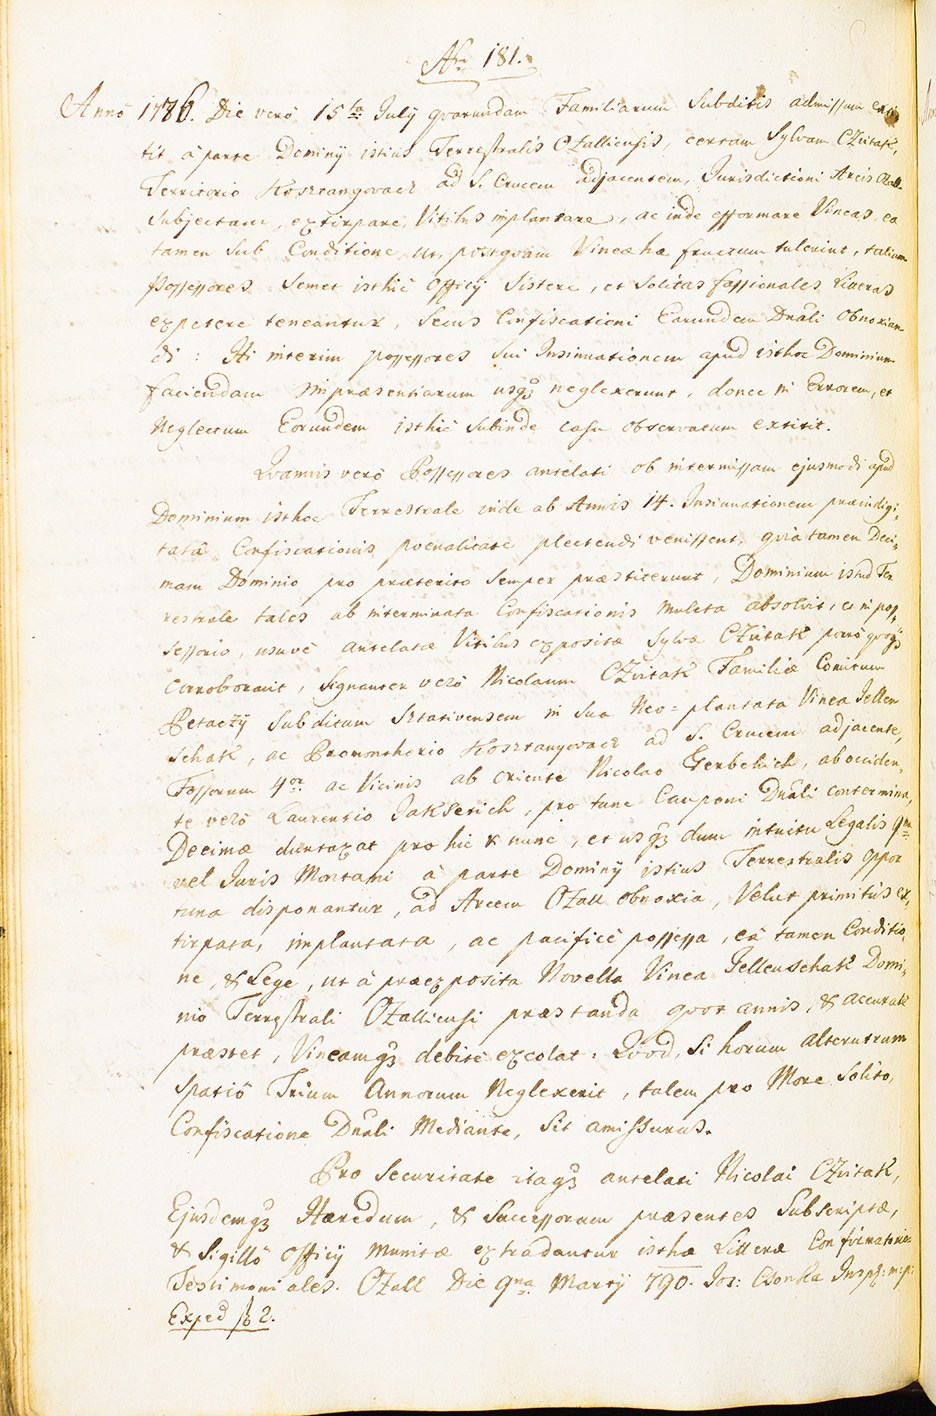 Nr. 181.
Anno 1776. Die verò 15ta July quorundam Familiarum Subditis admissum exti
tit à parte Dominÿ istius Terrestralis Ozalliensis, certam Sylvam CZvitak,
Territorio Kosztangovacz ad S. Crucem adjacentem, Jurisdictioni Arcis Ozall
Subjectam, extirpare, Vitibus implantare, ac inde efformare Vineas, ea
tamen sub Conditione ut, postquam Vineae hae fructum tulerint, talium
Possessores Semet isthic Officÿ Sistere, et Solitas fassionales Literas
expetere teneantur, Secus Confiscationi Earundem Dnali Obnoxian
di: Hi interim possessores Sui Insinuationem apud isthoc Dominium
faciendam impraesentiarum usq neglexerunt, donec in Errorem, et
Neglectum Eorundem isthic Subinde casu observatum extitit.
Quamvis verò Possessores antelati ob intermissam ejusmodi apud
Dominium isthoc Terrestrale inde ab Annis 14. Insinuationem praeindigi,
tatâ Confiscationis poenalitate plectendi venissent, quia tamen Deci,
mam Dominio pro praeterito Semper praestiterunt, Dominium istud Ter
restrale tales ab interminata Confiscationis mulcta absolvit, et in pos,
sessorio, usuvè antelatae Vitibus expositae Sylvae CZvitak porrò quoq
corroboravit, Signanter verò Nicolaum CZvitak Familiae Comitum
Petaczÿ Subditum Sztativensem in Sua Neo=plantata Vinea Jellen
schak, ac Promonthorio Kosztangovacz ad S. Crucem adjacente,
Fossorum 4or. ac Vicinis ab oriente Nicolao Gerbchich, ab occiden,
te verò Laurentio Jakssetich, pro tunc Cauponi Dnali contermina,
Decimae duntaxat pro hic & nunc, et usq dum intuitu Legalis 9nae
vel Juris Montani à parte Dominÿ istius Terrestralis oppor
tuna disponantur, ad Arcem Ozall obnoxia, Velut primitùs ex,
tirpata, implantata, ac pacificè possessa, eâ tamen Conditio,
ne, & Lege, ut à praeexposita Novella Vinea Jellenschak Domi,
nio Terrestrali Ozalliensi praestanda quot annis, & accuratè
praestet, Vineamq debitè excolat: Quod, Si horum alterutrum
Spatiô Trium Annorum Neglexerit, talem pro More Solito,
Confiscatione Dnali Mediante, Sit amissurus.
Pro Securitate itaq antelati Nicolai CZvitak,
Ejusdemq Haeredum, & Successorum praesentes Subscriptae,
& Sigillô Officÿ munitae extradantur isthae Litterae Confirmatoriae
Testimoniales. Ozall Die 9na Martÿ 790. Jos: Csonka Insp: m:p:
Exped ß 2.